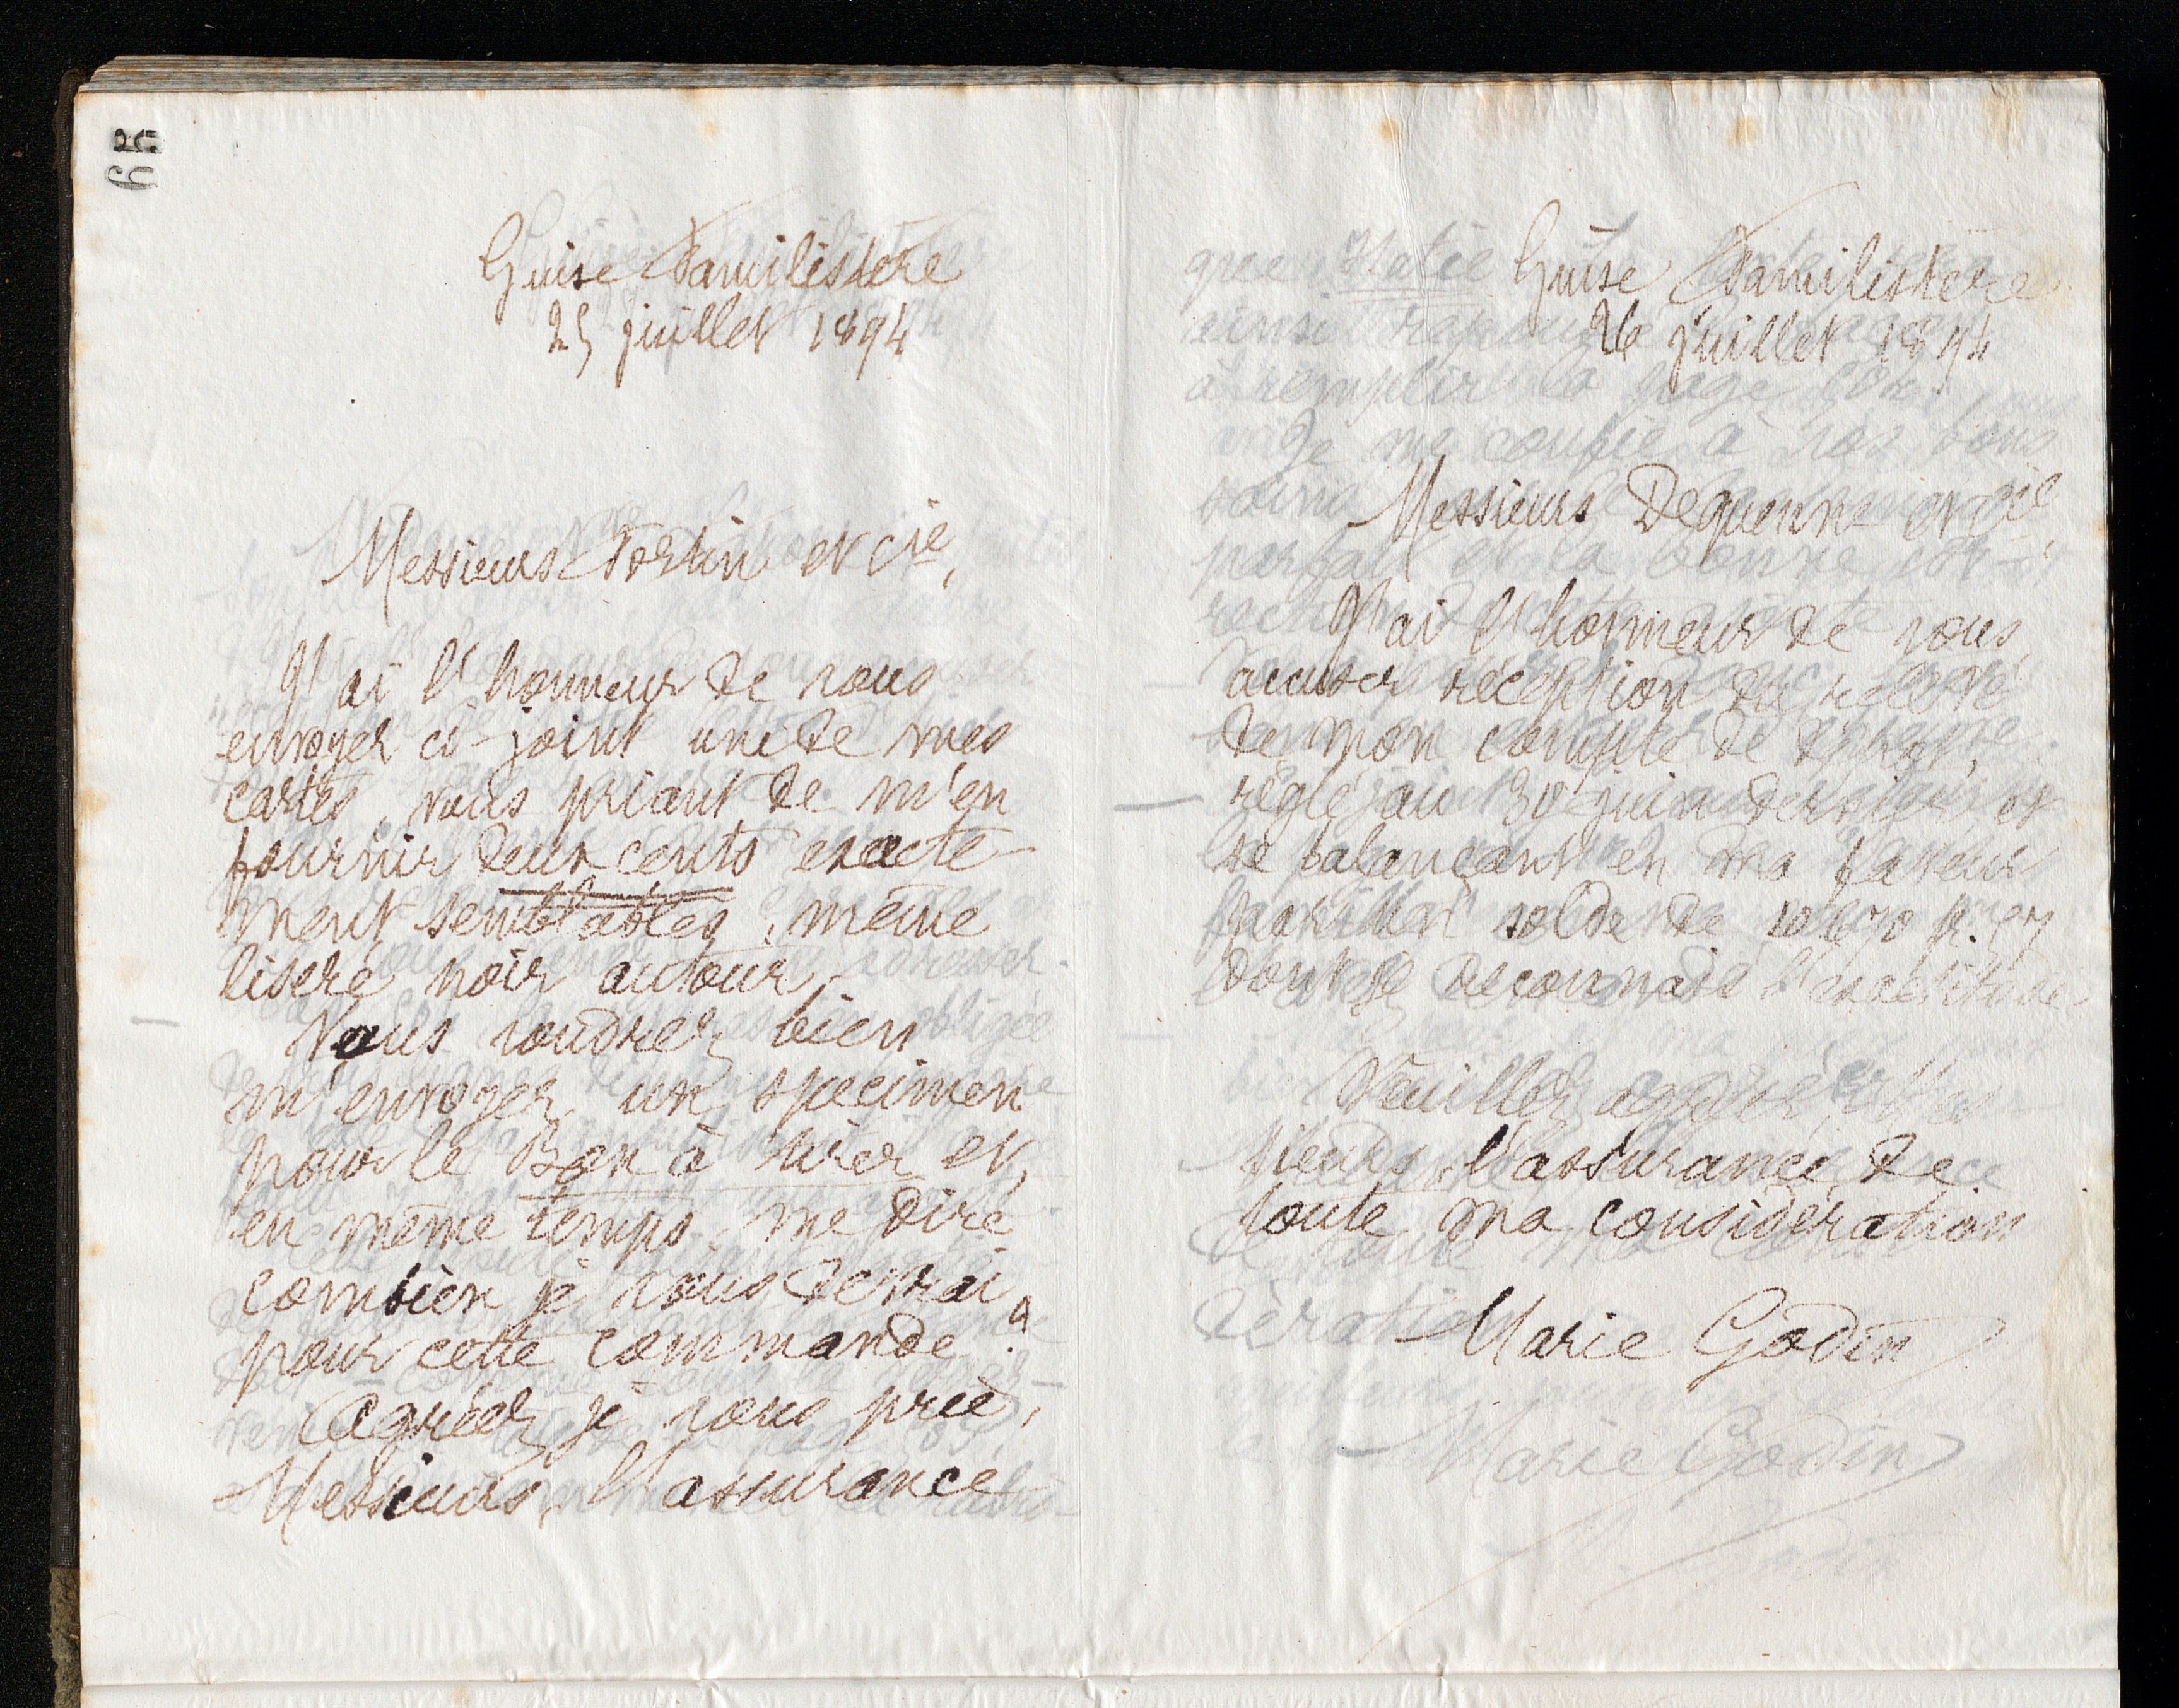 65
Guise Familistère
25 juillet 1894
Messieurs Fortin et Cie,
J'ai l'honneur de vous
envoyer ci-joint une de mes
cartes, vous priant de m'en
fournir deux cents exacte-
ment semblables, même
liseré noir autour.
Vous voudrez bien
m'envoyer un specimen
pour le Bon à tirer et,
en même temps, me dire
combien je vous devrai
pour cette commande ?
Agréez, je vous prie,
Messieurs, l'assurance
Guise Familistère
26 juillet 1894
Messieurs Dequenne et Cie,
J'ai l'honneur de vous
accuser réception du relevé
de mon compte de dépôt,
réglé au 30 juin dernier et
se balançant en ma faveur
par un solde de 10 670 fr. 57
dont je reconnais l'exactitude.
Veuillez agréer, Mes-
sieurs, l'assurance de
toute ma considération
Marie Godin